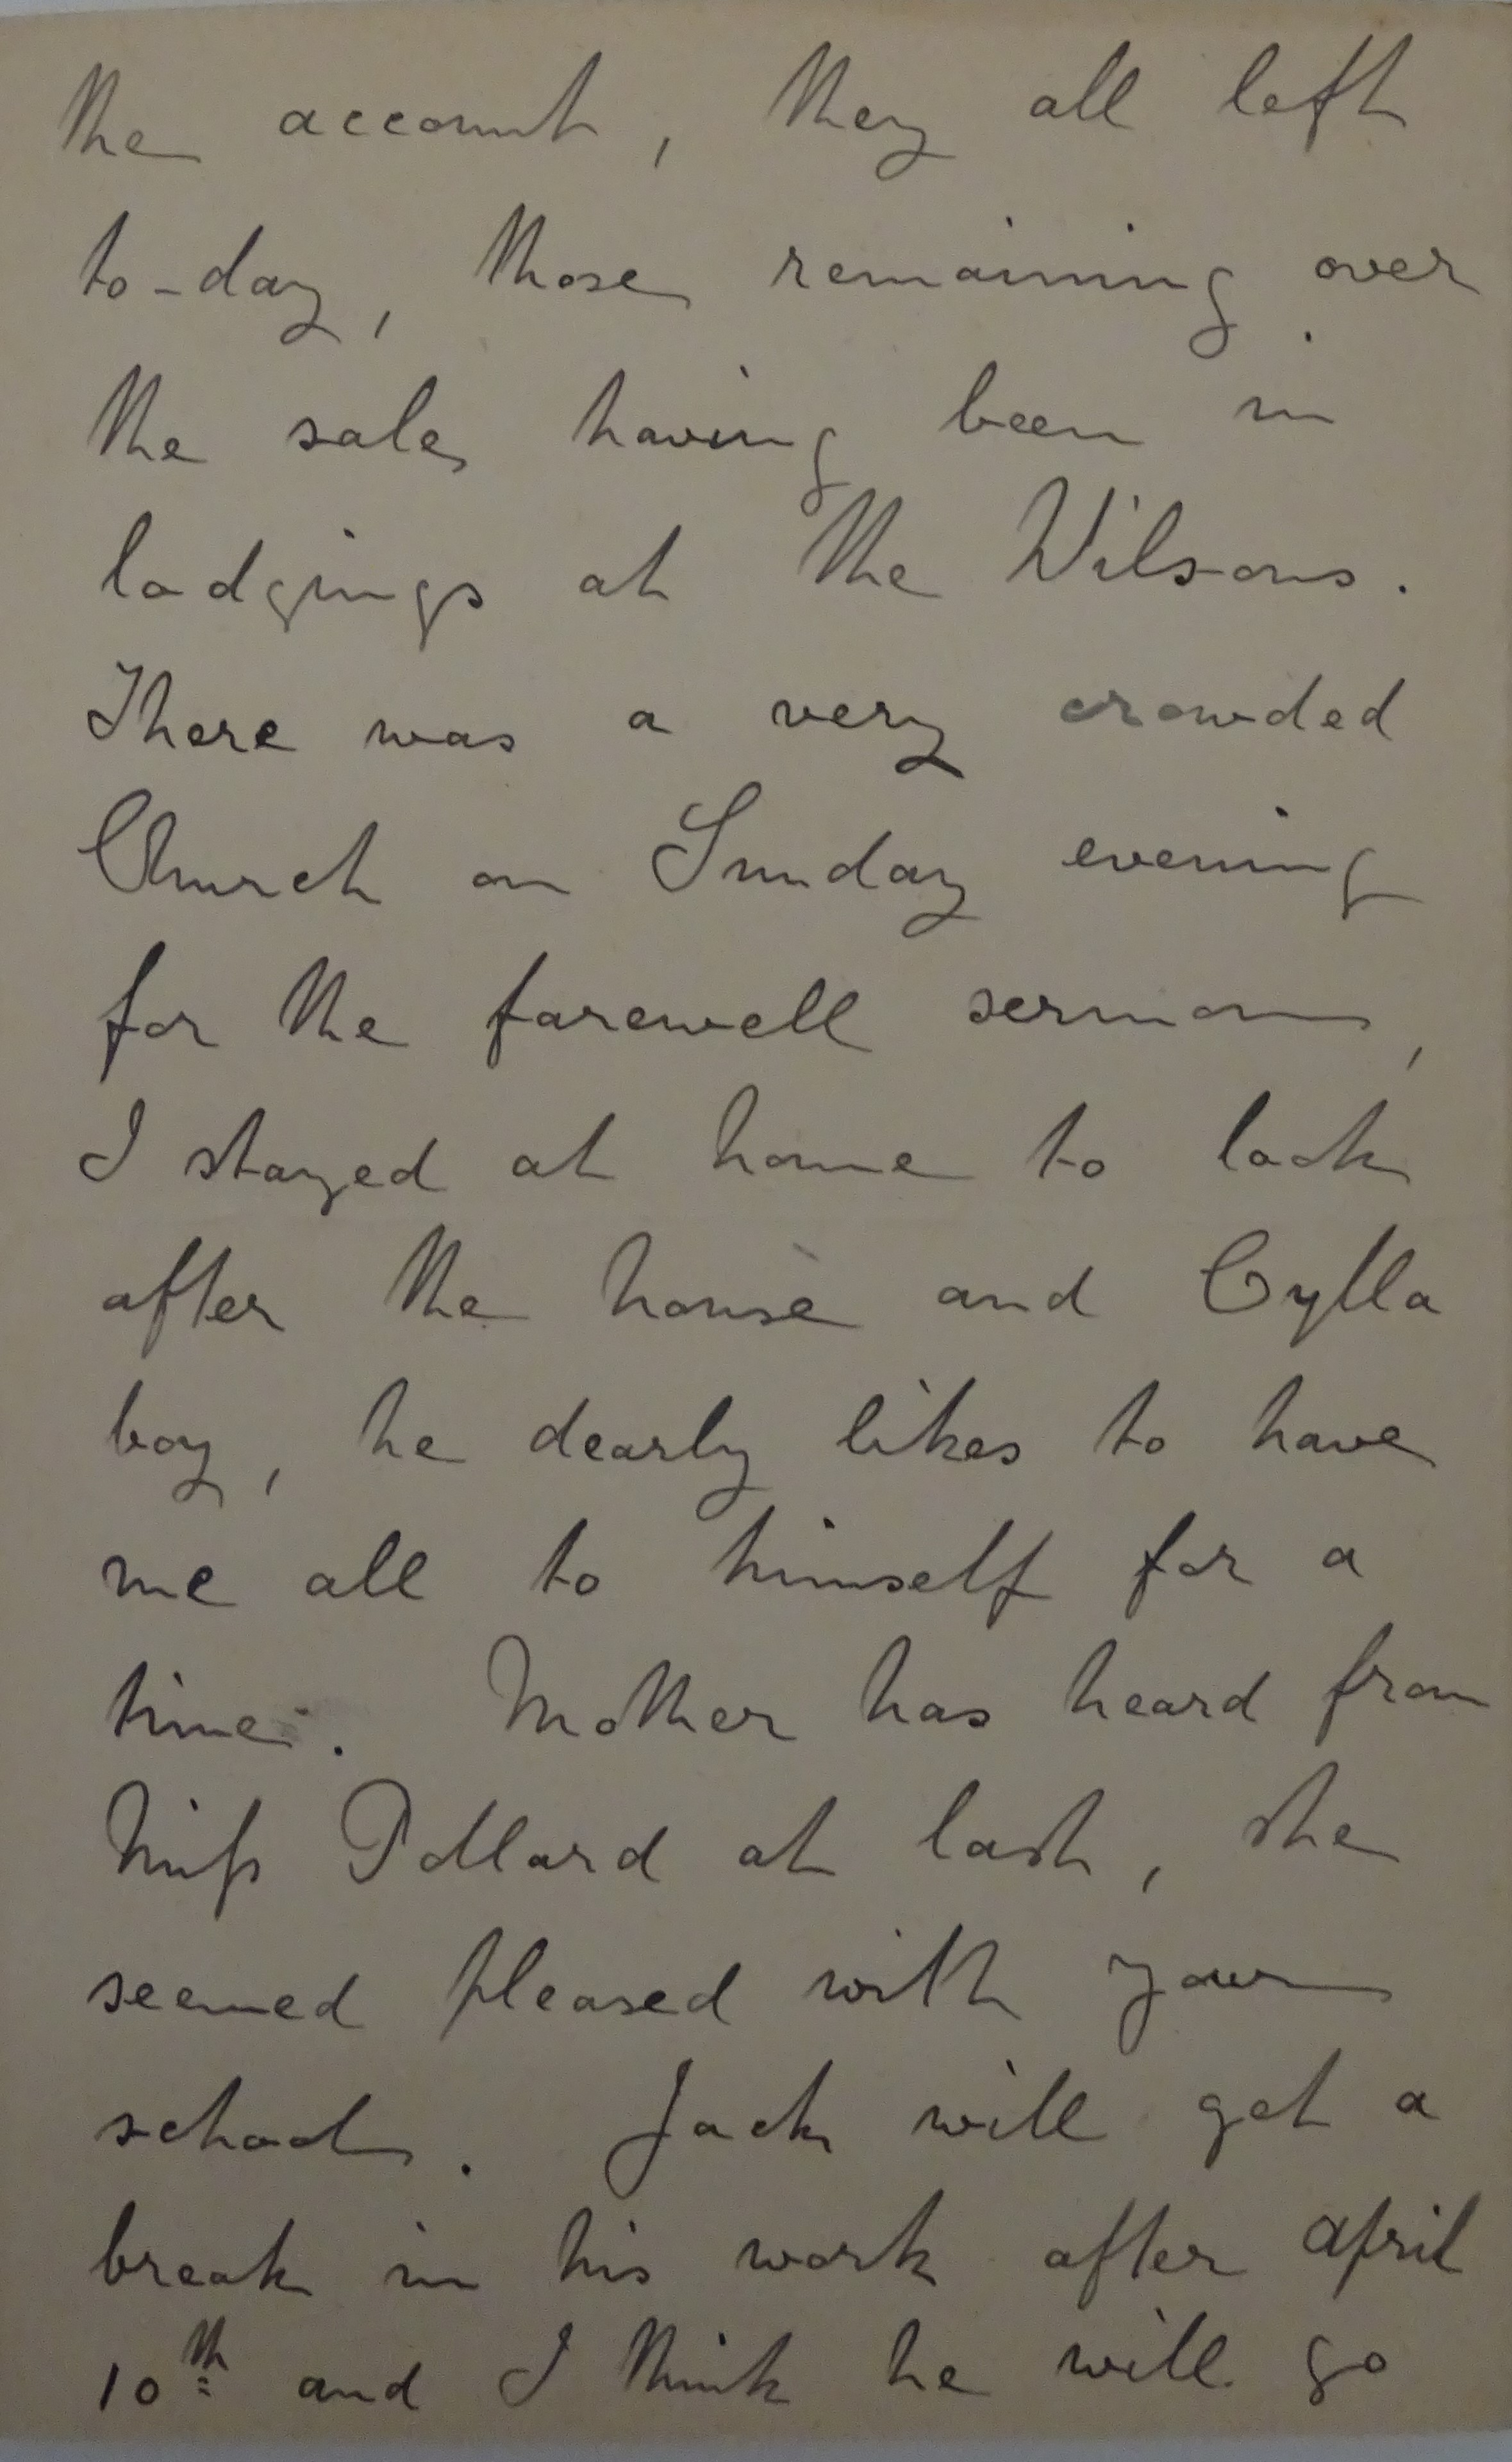 the account, they all left
to-day, those remaining over
the sale, having been in
lodgings at the Wilsons.
There was a very crowded
Church on Sunday evening
for the farewell sermon,
I stayed at home to look
after the house and Cylla
boy, he dearly likes to have
me all to himself for a
time. Mother has heard from
Miss Pollard at last, she
seemed pleased with your
school. Jack will get a
break in his work after April
10th and I think he will go